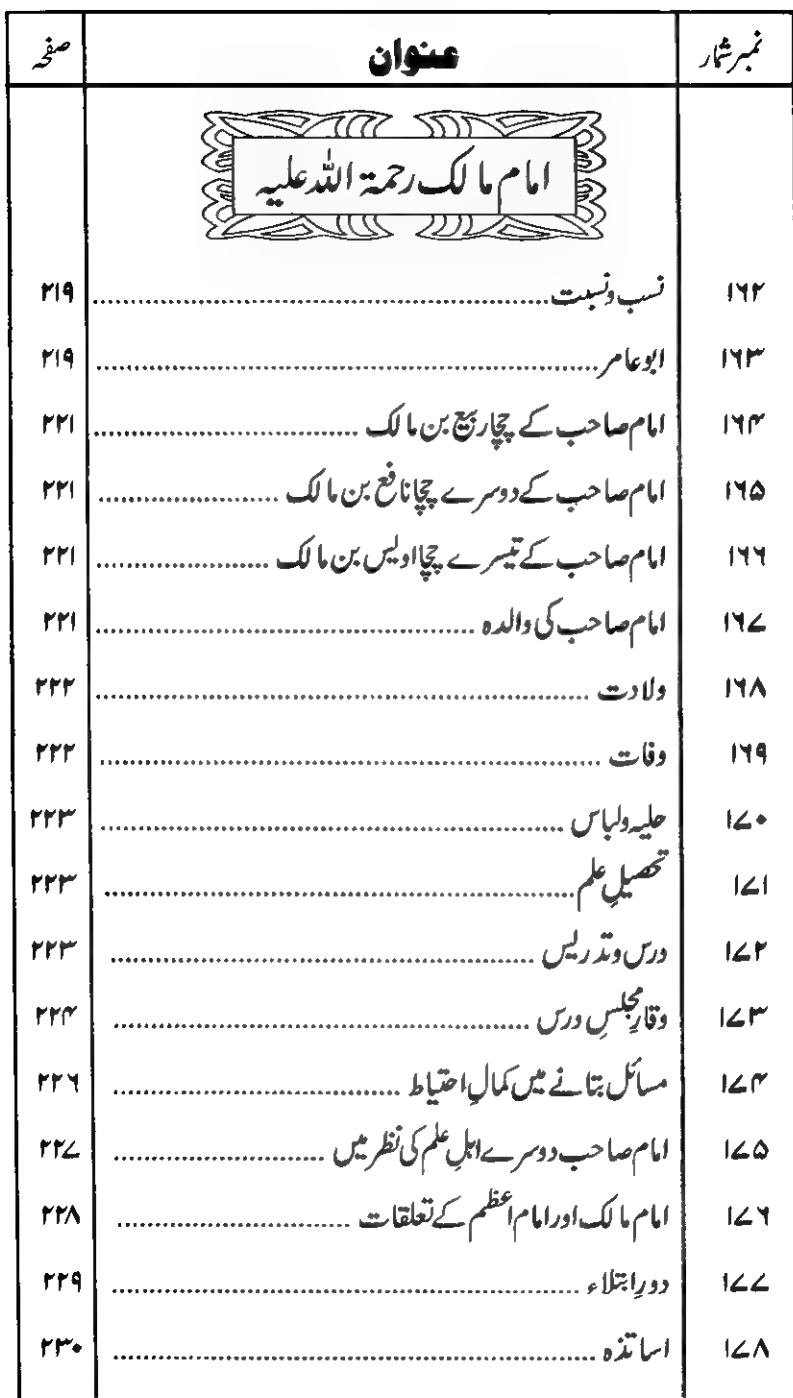 نمبر شمار عنوان صفحہ
امام مالک رحمۃ اللہ علیہ
۱۶۲ نسب ونسبت ۲۱۹
۱۶۳ ابوعامر ۲۱۹
۱۶۴ امام صاحب کے چچا ربیع بن مالک ۲۲۱
۱۶۵ امام صاحب کے دوسرے چچا نافع بن مالک ۲۲۱
۱۶۶ امام صاحب کے تیسرے چچا اویس بن مالک ۲۲۱
۱۶۷ امام صاحب کی والدہ ۲۲۱
۱۶۸ ولادت ۲۲۲
۱۶۹ وفات ۲۲۲
۱۷۰ حلیہ ولباس ۲۲۳
۱۷۱ تحصیلِ علم ۲۲۳
۱۷۲ درس وتدریس ۲۲۳
۱۷۳ وقارِ مجلسِ درس ۲۲۴
۱۷۴ مسائل بتانے میں کمالِ احتیاط ۲۲۶
۱۷۵ امام صاحب دوسرے اہلِ علم کی نظر میں ۲۲۷
۱۷۶ امام مالک اور امام اعظم کے تعلقات ۲۲۸
۱۷۷ دورِ ابتلاء ۲۲۹
۱۷۸ اساتذہ ۲۳۰